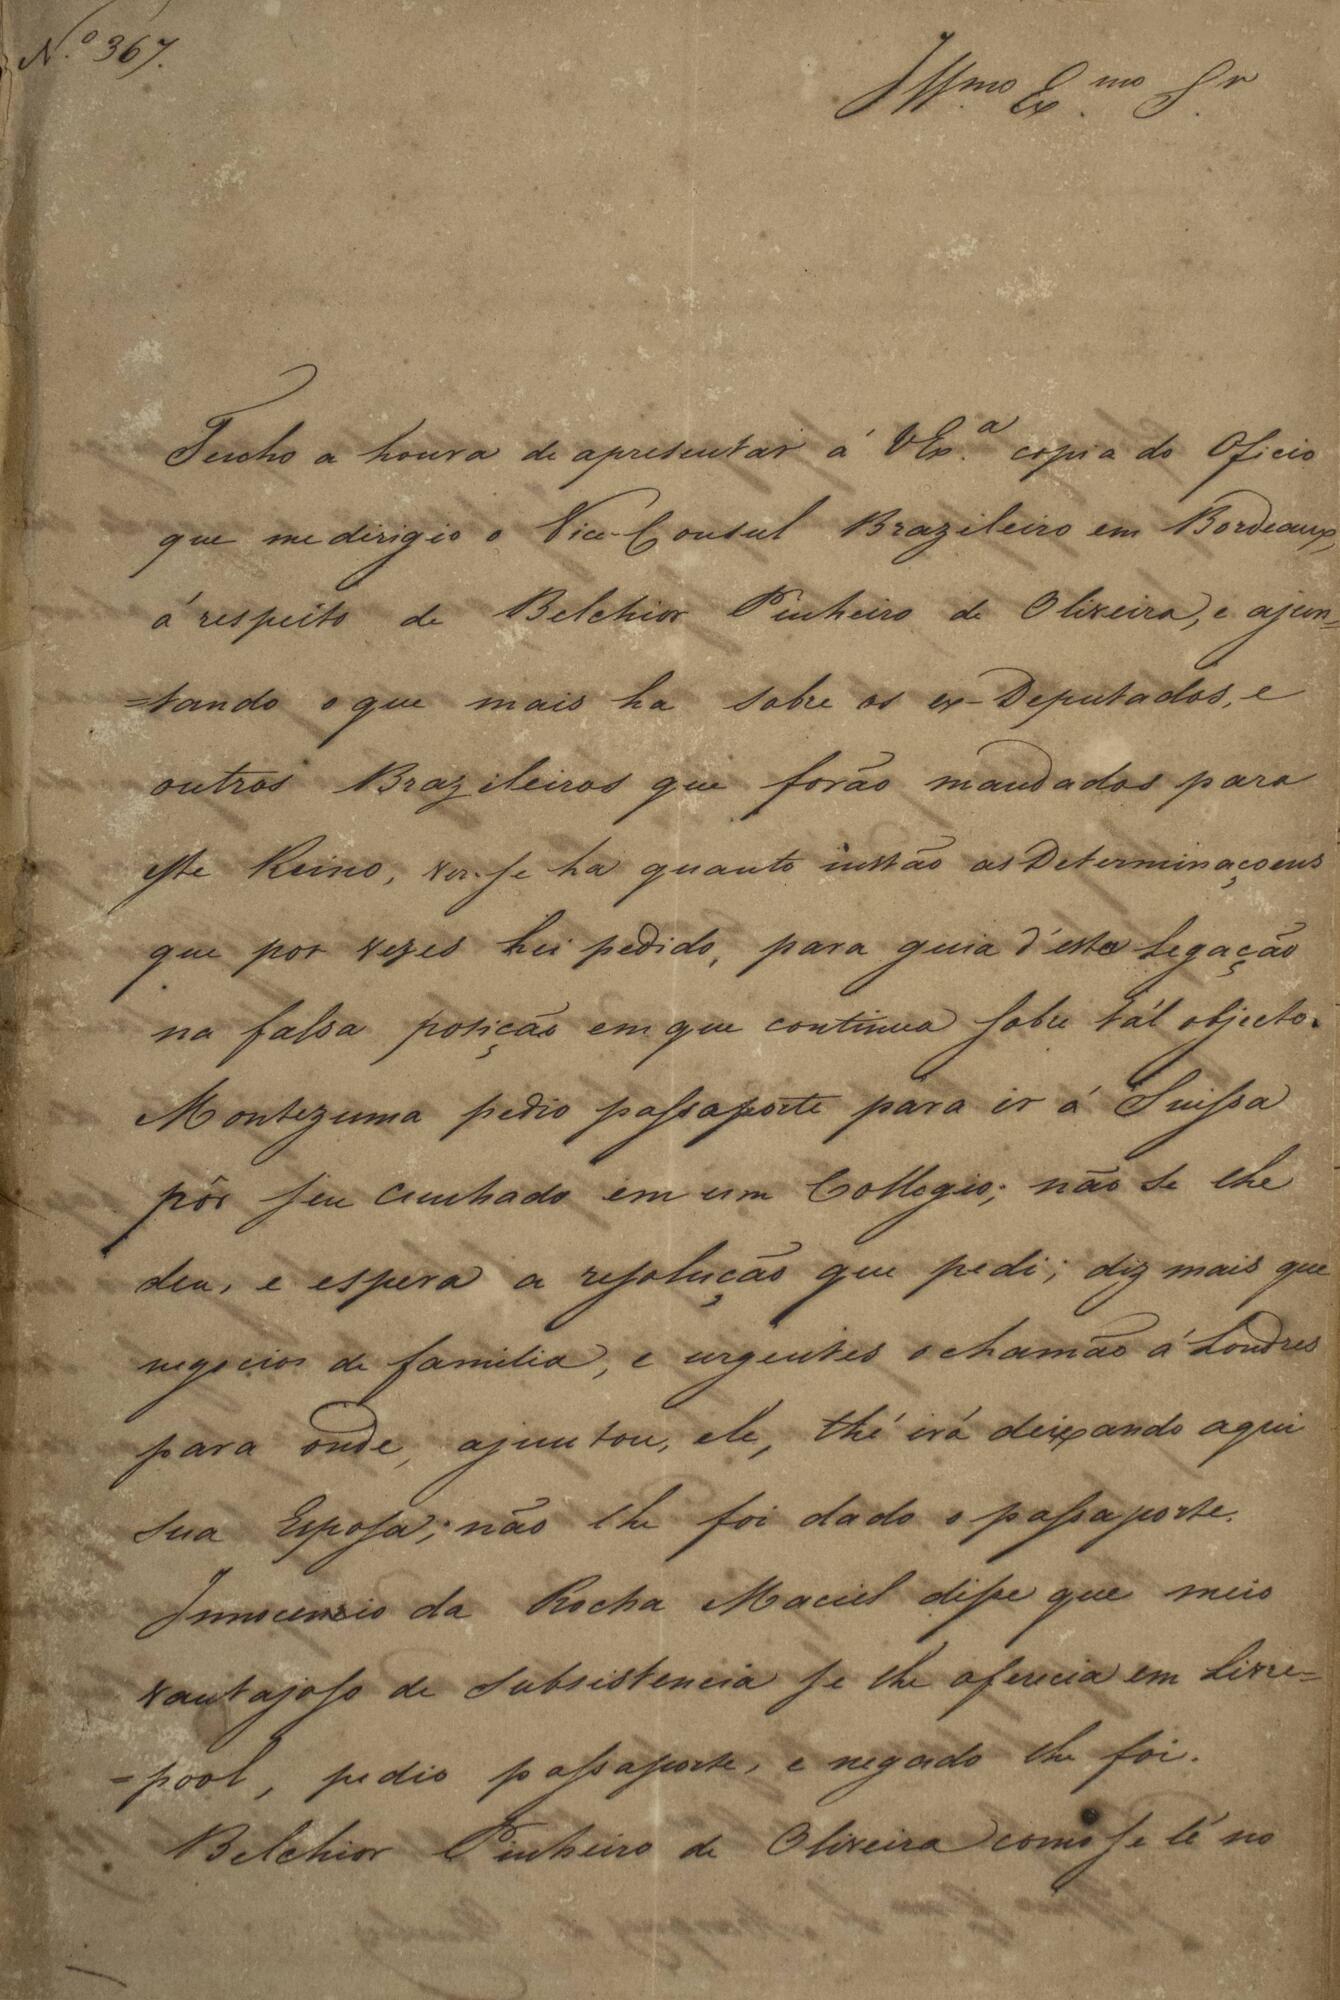 N.º 367.
Illmo Ex.mo Sr.
Tenho a honra de apresentar á VEx.ª copia do Oficio
que me dirigio o Vice-Consul Brazileiro em Bordeaux,
á respeito de Belchior Pinheiro de Oliveira, e ajun=
=tando o que mais ha sobre os ex-Deputados, e
outros Brazileiros que forão mandados para
este Reino, ver-se ha quanto instão as Determinaçoens
que por vezes hei pedido, para guia d'esta Legação
na falsa posição em que continua sobre tál objecto.
Montezuma pedio passaporte para ir á Suissa
pôr seu cunhado em um Collegio; não se lhe
deu, e espera a resolução que pedi; diz mais que
negocios de familia, e urgentes o chamão á Londres
para onde, ajuntou, ele, thé irá deixando aqui
sua Esposa; não lhe foi dado o passaporte.
Innocencio da Rocha Maciel disse que meio
vantajoso de subsistencia se lhe oferecia em Liver=
=pool, pedio passaporte, e negado lhe foi.
Belchior Pinheiro de Oliveira como se lê no